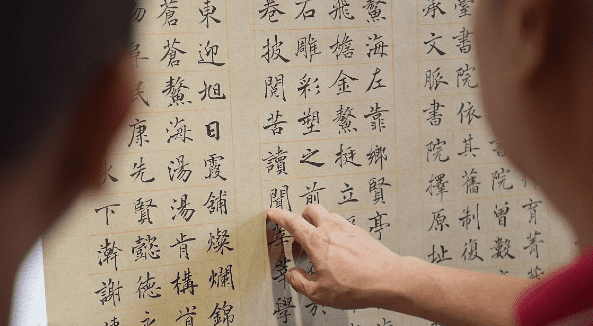 育菁
書院曾數
臺書院依其舊制復
承文脈書院擇原址
鰲海左靠鄉賢亭
飛檐金鰲挺立
石雕彩塑之前
卷披閱苦讀聞莘莘學
東迎旭日霞舖燦爛錦
蒼蒼鰲海湯湯肯構
民康先賢懿德
下瀚謝